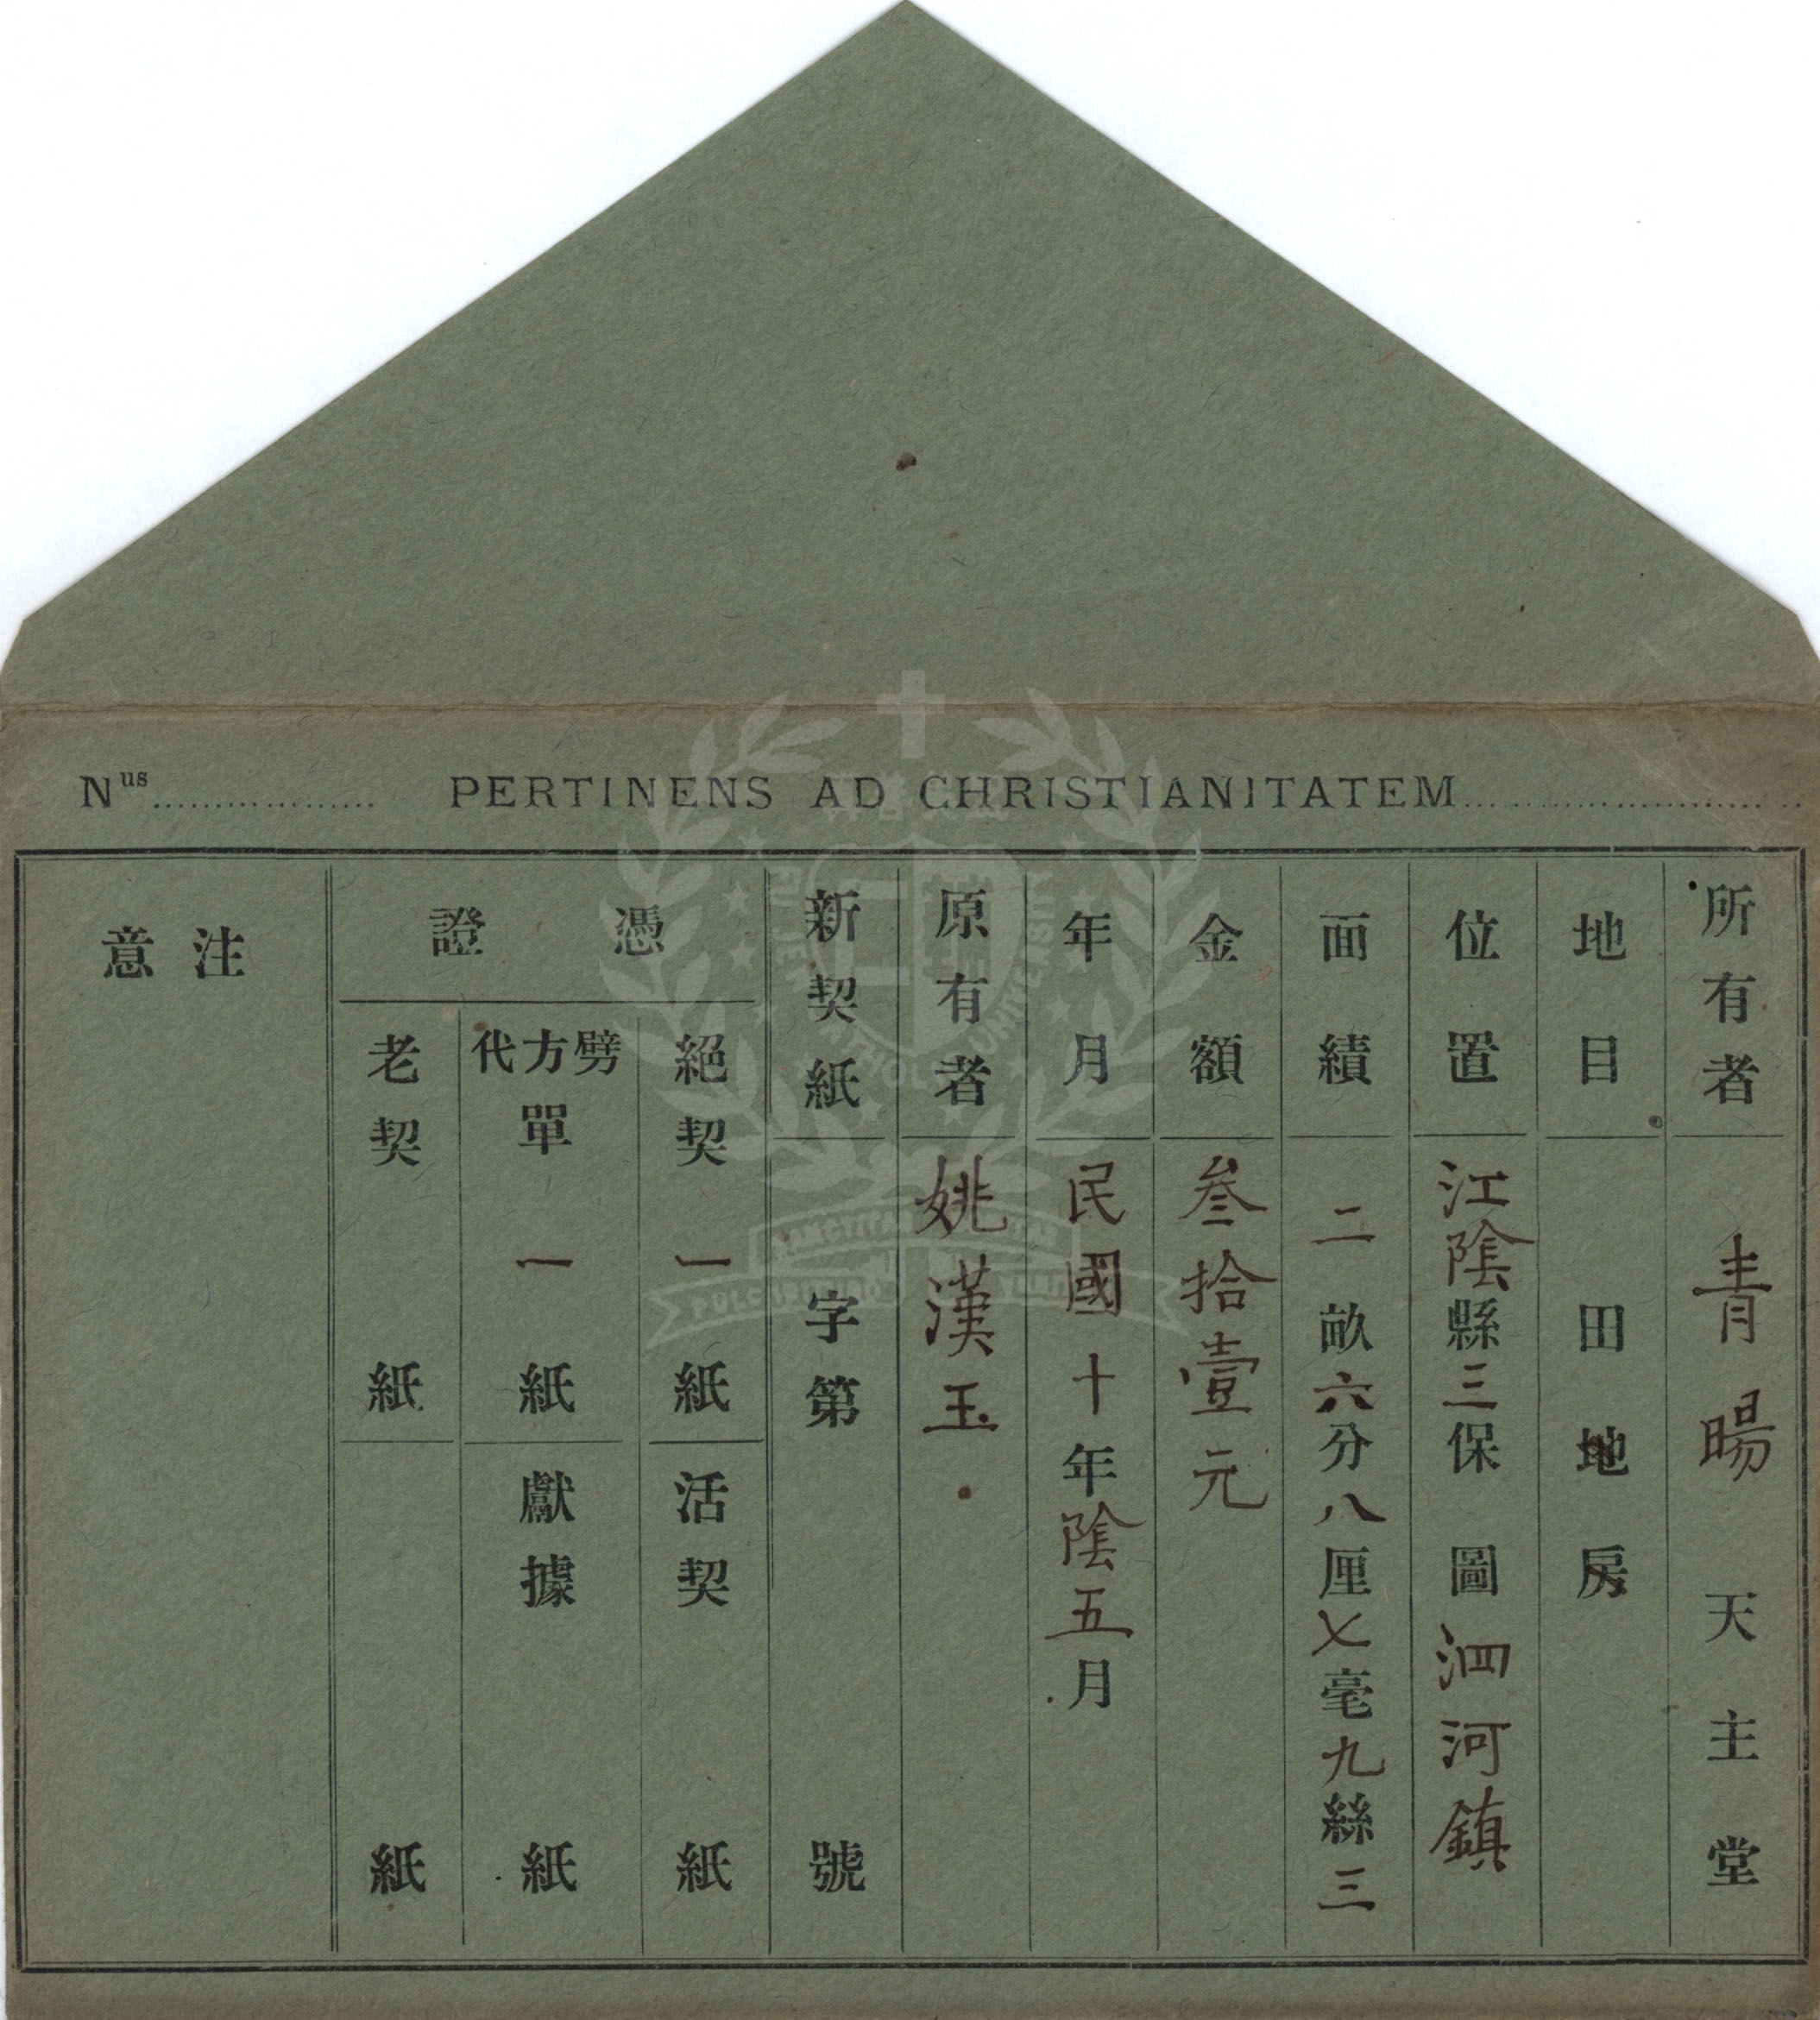 Nus.................. PERTINENS AD CHRISTIANITATEM..............................
所有者 青暘天主堂
地目 田地房
位置 江陰縣三保圖泗河鎮
面績 二畝六分八厘七毫九絲三
金額 叁拾壹元
年月 民國十年陰五月
原有者 姚漢玉
新契紙 字第 號
憑證
絕契 一紙
活契 紙
劈方代單 一紙
獻據 紙
老契 紙
紙
注意